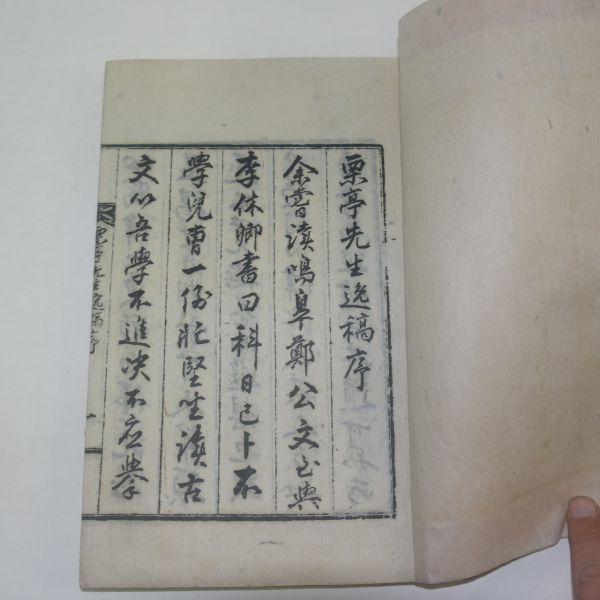 栗亭先生逸稿序
余嘗讀鳴皐鄭公文至與
李休卿書曰科日已卜不
學兒曹一例牢坚坐讀古
文以吾學不進決不應擧
栗亭先生逸稿序
一